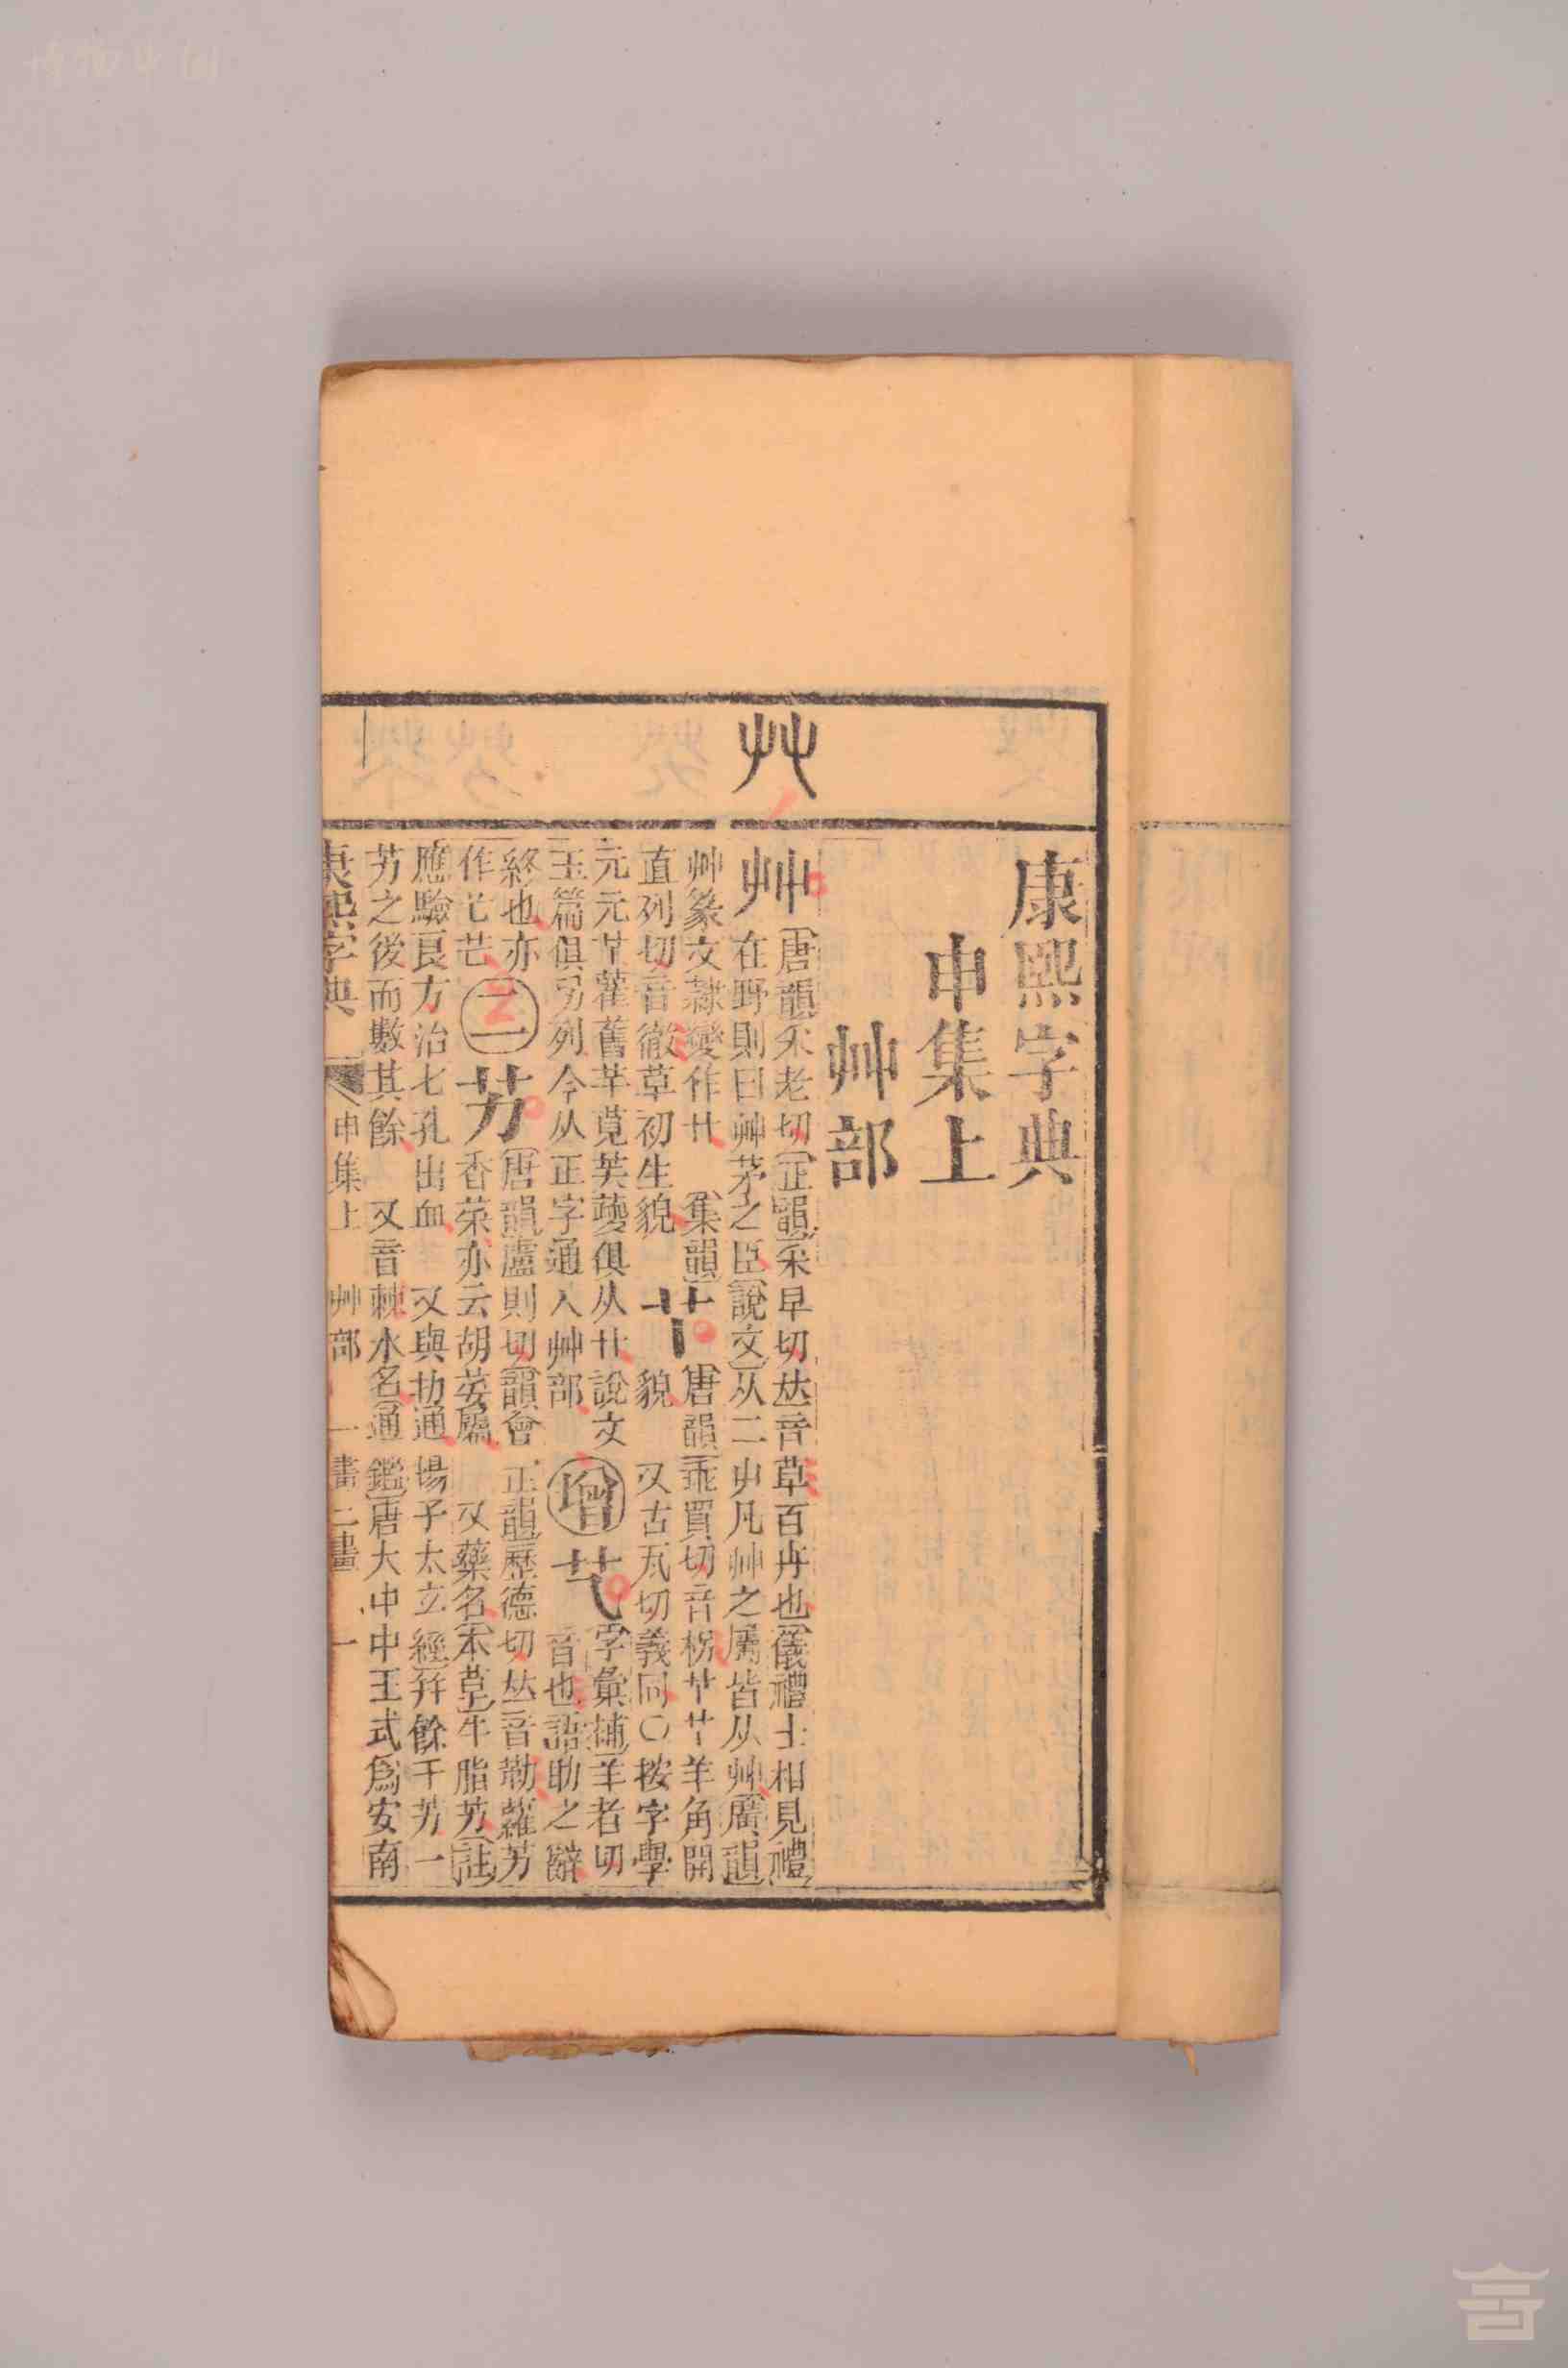 康熙字典
申集上
艸部
艸
艸
唐韻采老切正韻采早切𠀤音草百卉也儀禮士相見禮
在野則曰艸茅之臣說文从二屮凡艸之屬皆从艸廣韻
艸篆文隸變作艹 集韻 𦫳 唐韻乖買切音枴𦫳𦫳羊角開
直列切音徹草初生貌 貌 又古瓦切義同〇按字學
元元𦫳雚舊芊萈俱从艹說文 字彙補羊者切
玉篇俱另列今从正字通入艸部 增 音也語助之辭
終也亦 唐韻盧則切韻會 正韻歷德切𠀤音勒蘿艻
作亡芒 二 艻 香菜亦云胡荽屬 又藥名本草牛脂艻註
應驗良方治七孔出血 又與扐通 揚子太立經幷餘于艻一
艻之後而數其餘 又音棘水名通鑑唐大中中王式爲安南
康熙字典 申集上 艸部 一畫二畫 一